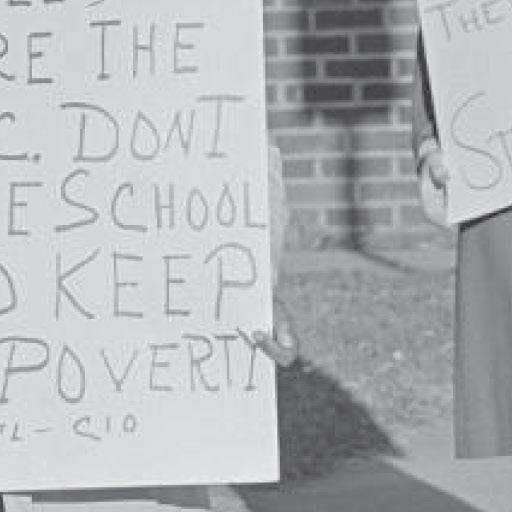 RE THE
C. DONT
E SCHOOL
KEEP
POVERTY
L-CIO
THE
ST